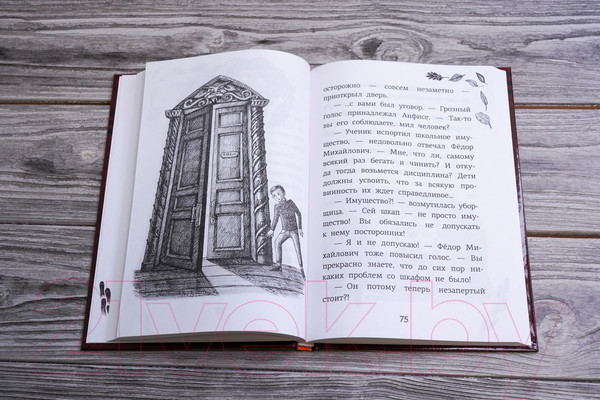 осторожно — совсем незаметно —
приоткрыл дверь.
— ...с вами был уговор. — Грозный
голос принадлежал Анфисе. — Так-то
вы его соблюдаете, мил человек?
— Ученик испортил школьное иму-
щество, — недовольно отвечал Фёдор
Михайлович. — Мне, что ли, самому
всякий раз бегать и чинить? И отку-
да тогда возьмется дисциплина? Дети
должны усвоить, что за всякую про-
винность их ждет справедливое...
— Имущество?! — возмутилась убор-
щица. — Сей шкап — не просто иму-
щество! Вы обязались не допускать
к нему посторонних!
— Я и не допускаю! — Фёдор Ми-
хайлович тоже повысил голос. — Вы
прекрасно знаете, что до сих пор ни-
каких проблем со шкафом не было!
— Он потому теперь незапертый
стоит?!
75
21vek.by